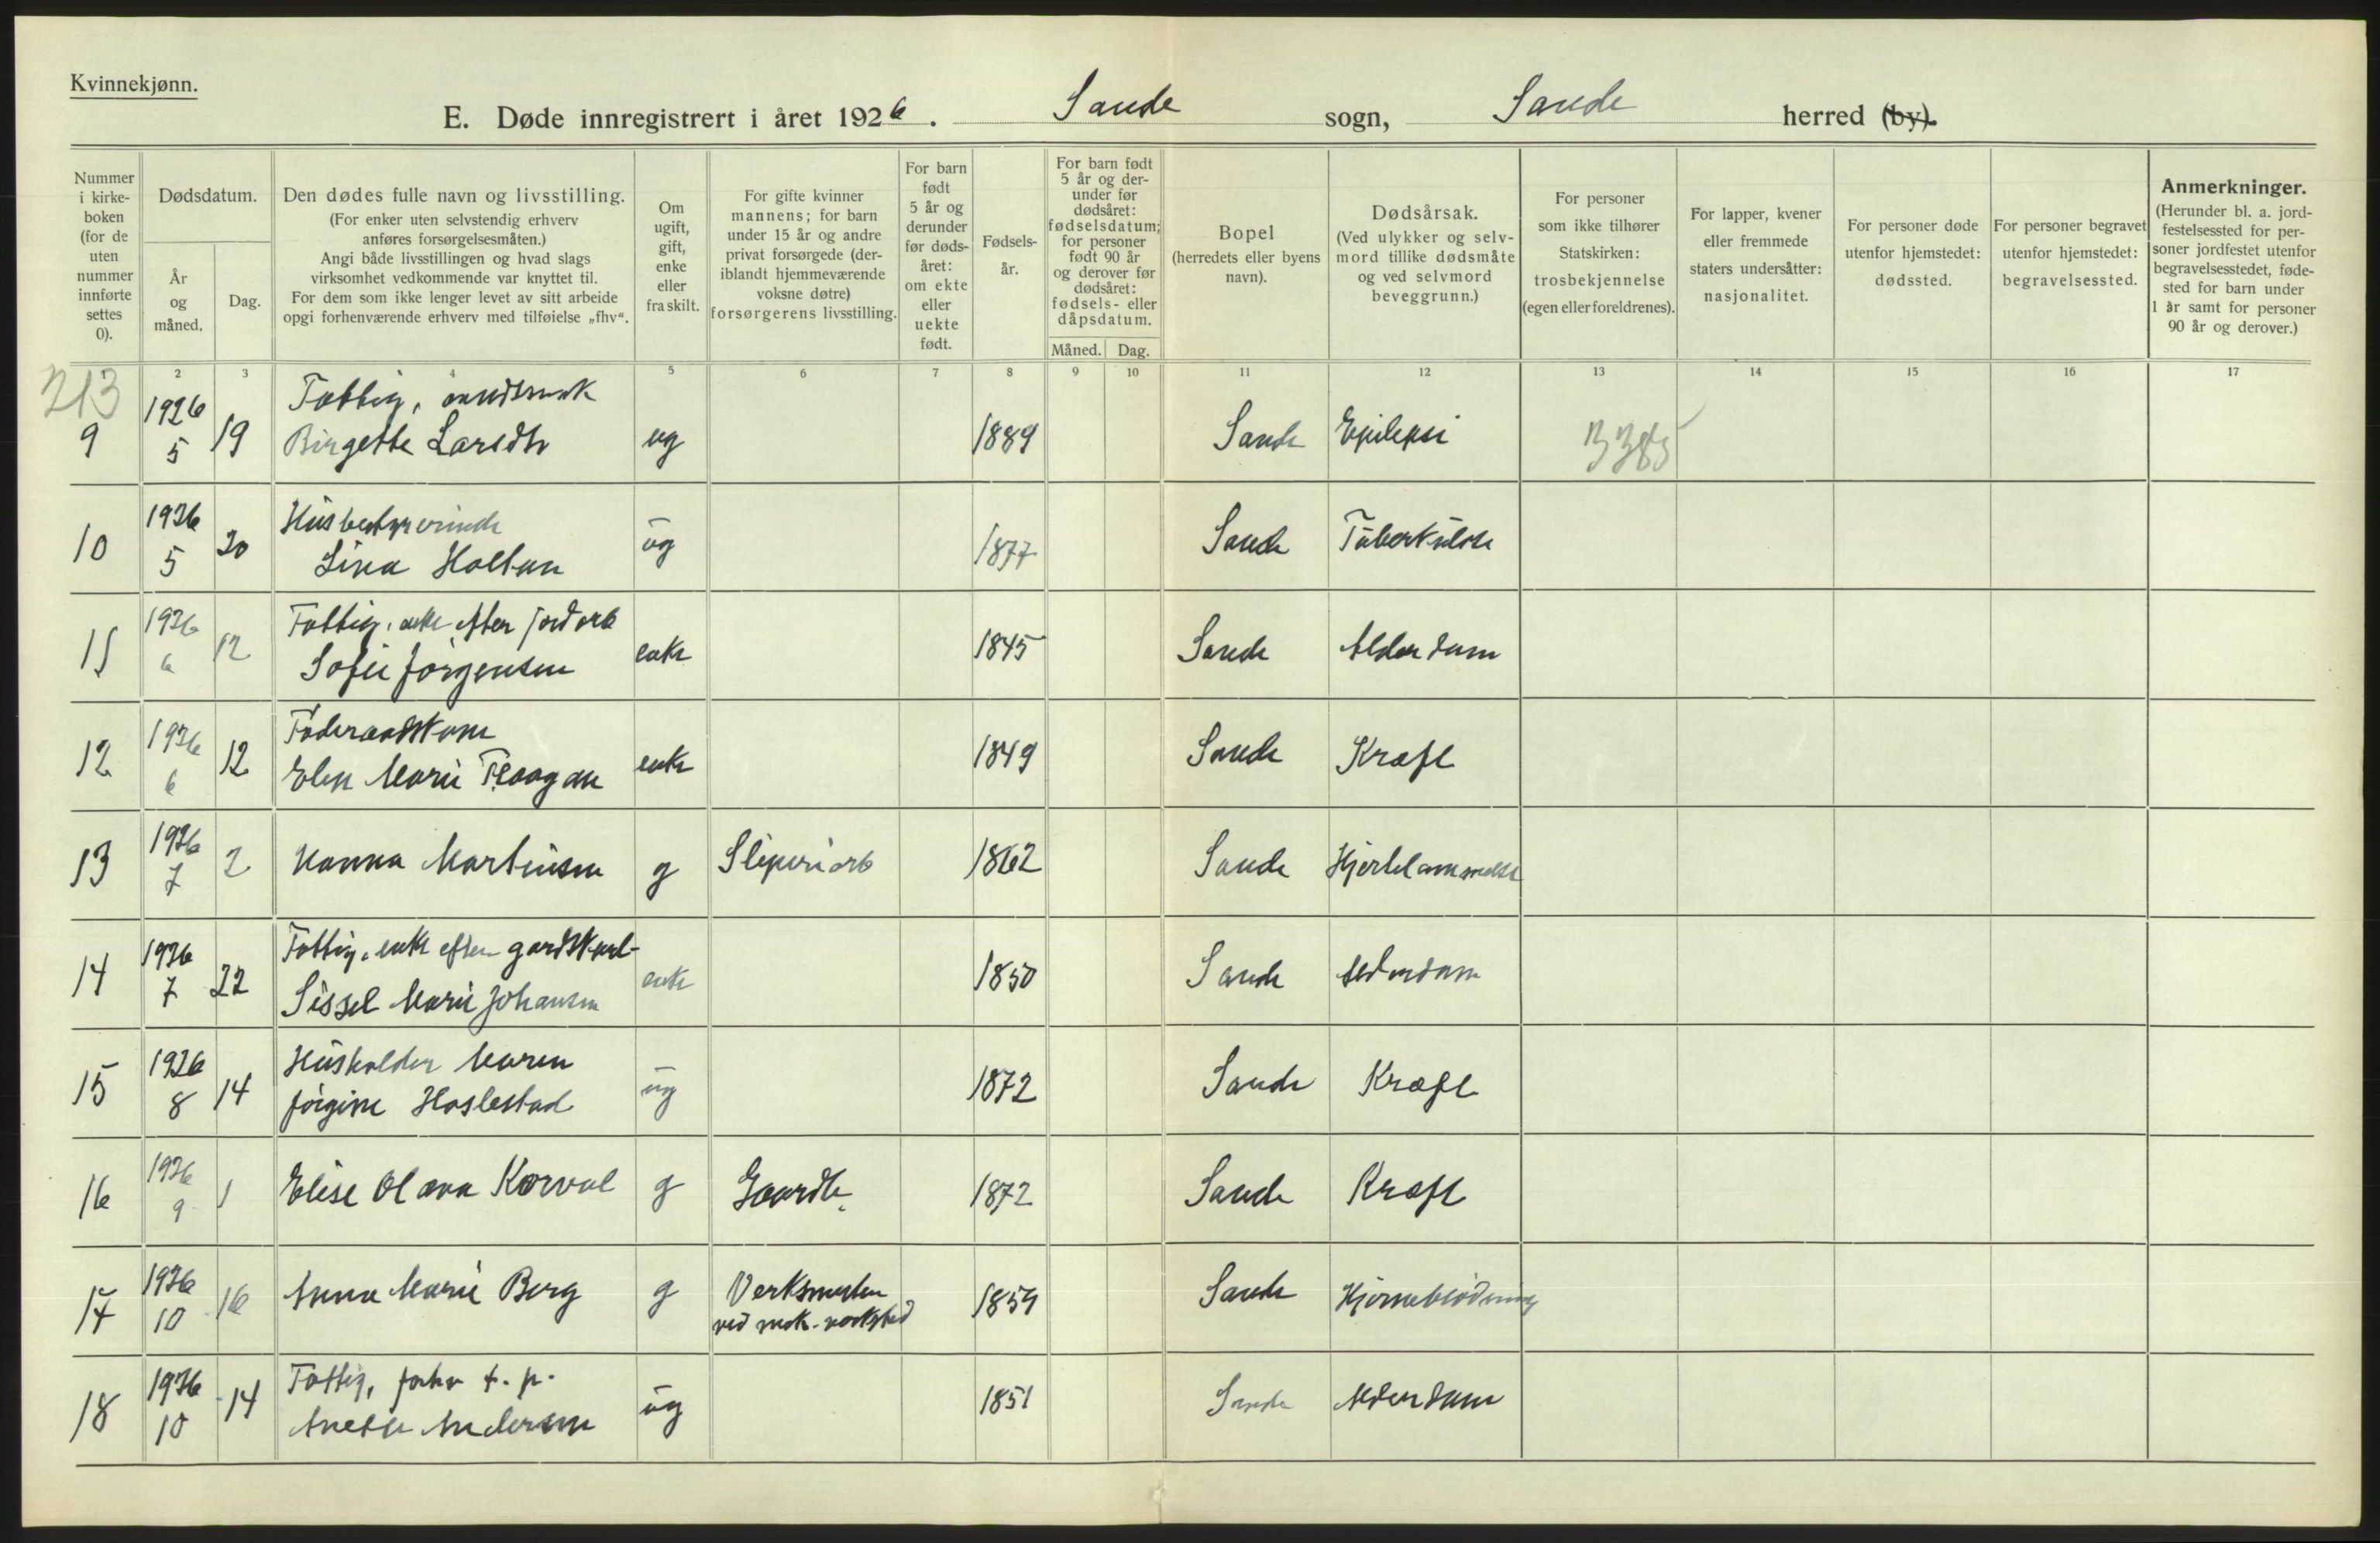 Kvinnekjønn.
E. Døde innregistrert i året 1926. Sande sogn, Sande herred (by).
Nummer i kirkeboken (for de uten nummer innførte settes 0).
Dødsdatum.
År og måned.
Dag.
Den dødes fulle navn og livsstilling.
(For enker uten selvstendig erhverv
anføres forsørgelsesmåten.)
Angi både livsstillingen og hvad slags
virksomhet vedkommende var knyttet til.
For dem som ikke lenger levet av sitt arbeide
opgi forhenværende erhverv med tilføielse „fhv“.
Om ugift, gift, enke eller fraskilt.
For gifte kvinner
mannens; for barn
under 15 år og andre
privat forsørgede (der-
iblandt hjemmeværende
voksne døtre)
forsørgerens livsstilling.
For barn født 5 år og derunder før dødsåret: om ekte eller uekte født.
Fødsels-
år.
For barn født
5 år og der-
under før
dødsåret:
fødselsdatum;
for personer
født 90 år
og derover før
dødsåret:
fødsels- eller
dåpsdatum.
Måned. Dag.
Bopel
(herredets eller byens
navn).
Dødsårsak.
(Ved ulykker og selv-
mord tillike dødsmåte
og ved selvmord
beveggrunn.)
For personer
som ikke tilhører
Statskirken:
trosbekjennelse
(egen eller foreldrenes).
For lapper, kvener
eller fremmede
staters undersåtter:
nasjonalitet.
For personer døde
utenfor hjemstedet:
dødssted.
For personer begravet
utenfor hjemstedet:
begravelsessted.
Anmerkninger.
(Herunder bl. a. jord-
festelsessted for per-
soner jordfestet utenfor
begravelsesstedet, føde-
sted for barn under
1 år samt for personer
90 år og derover.)
2 3 4 5 6 7 8 9 10 11 12 13 14 15 16 17
213
1926 Fattig, aandssvak
9 5 19 Birgette Larsdtr ug 1889 Sande Epilepsi 3385
1926 Husbestyrerinde
10 5 20 Lina Holtan ug 1877 Sande Tuberkulose
1926 Fattig, enke efter jordarb
11 6 12 Sofie Jørgensen enke 1845 Sande Alderdom
1926 Føderaadskone
12 6 12 Elen Marie enke 1849 Sande Kræft
1926
13 7 2 Hanna Martinsen g Sliperiarb 1862 Sande Hjertelammelse
1926 Fattig, enke efter gardskarl
14 7 22 Sissel Marie Johansen enke 1850 Sande Alderdom
1926 Husholder Maren
15 8 14 Jørgine Haslestad ug 1872 Sande Kræft
1926
16 9 1 Elise Olava Korval g Gaardbr. 1872 Sande Kræft
1926
17 10 16 Anna Marie Berg g Verksmester 1859 Sande Hjerneblødning
ved mek. verksted
1926 Fattig, forhv t. p.
18 10 14 Anette Andersen ug 1851 Sande Alderdom